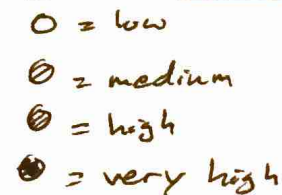 ○ = low
⊘ = medium
⊘ = high
● = very high